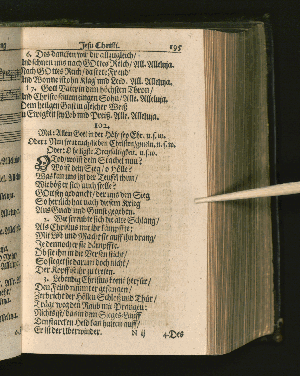 Jesu Christi. 195
6. Des dancken wir dir allzugleich/
und sehnen uns nach GOttes Reich/ All. Alleluja.
Nach GOttes Reich/ da ist er Freud/
Und Wonne ohn Klag und Leid. All. Alleluja.
17. Gott Vatern in dem höchsten Thron/
und Christo seinem einigen Sohn/ All. Alleluja.
Dem heilgen Geist in gleicher Weiß
in Ewigkeit sey Lob und Preiß. Alle. Alleluja.
102.
Mel: Allein Gott in der Höh/ sey Ehr. u.s.w.
Oder: Nun freut euch lieben Christen, gmein, u.s.w.
Oder: O heiligste Dreyfaltigkeit. u.s.w.
O Tod/ wo ist dein Stachel nun?
Wo ist dein Sieg/ o Hölle?
Was kan uns itzt der Teufel thun/
Wie böß er sich auch stelle?
GOtt sey gedanckt/ der uns den Sieg
So herrlich hat nach diesem Krieg
Aus Gnad und Gunst gegeben.
2. Wie sträubte sich die alte Schlang/
Als Christus mit ihr kämpffte;
Mit List und Macht sie auf ihn drang/
Je dennoch er sie dämpffte.
Ob sie ihn in die Fersen sticht/
So sieget sie darum doch nicht/
Der Kopff ist ihr zutreten.
3. Lebendig Christus kömt herfür/
Den Feind nimmt er gefangen/
Zerbricht der Höllen Schloß und Thür/
Trägt weg den Raub mit Prangen:
Nichts ist/ das in dem Sieges-Lauff
Den starcken Held kan halten auff/
Er ist der Uberwinder.
N ij 4. Des